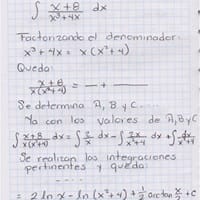 ∫ x+8 / x³+4x dx
Factorizando el denominador:
x³+4x = x(x²+4)
Queda:
x+8 / x(x²+4) = — + ———
Se determina A, B y C....
Ya con los valores de A, B y C
∫ x+8 / x(x²+4) dx = ∫ 2/x dx - ∫ 2x / x²+4 dx + ∫ dx / x²+4
Se realizan las integraciones
pertinentes y queda:
....
= 2 ln x - ln (x²+4) + 1/2 arctan x/2 + C